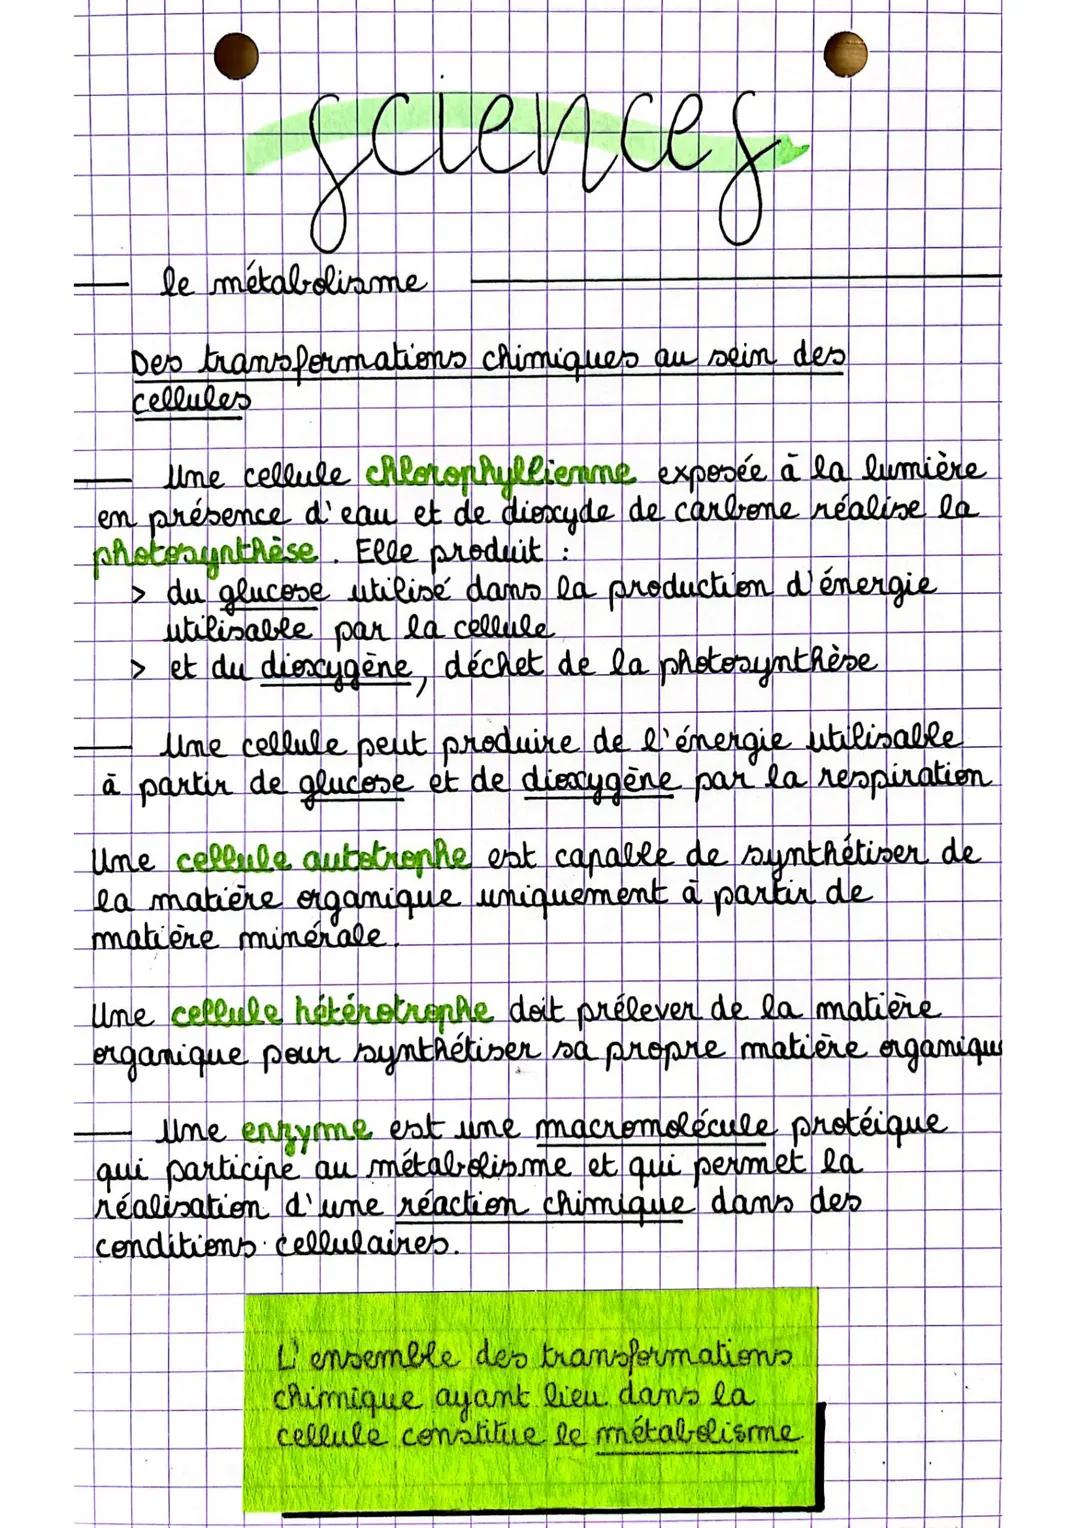 sciences
le métabolisme
Des transformations chimiques au sein des
cellules
Une cellule chlorophyllienne exposée à la lumière
en présence d'eau et de dioxyde de carbone réalise la
photosynthèse. Elle produit :
> du glucose utilisé dans la production d'énergie
utilisable par la cellule
> et du dioxygène, déchet de la photosynthèse
Une cellule peut produire de l'énergie utilisable
à partir de glucose et de dioxygène par la respiration
Une cellule autotrophe est capable de synthétiser de
la matière organique uniquement à partir de
matière minérale.
Une cellule hétérotrophe doit prélever de la matière
organique pour synthétiser sa propre matière organique
Une enzyme est une macromolécule protéique
qui participe au métabolisme et qui permet la
réalisation d'une réaction chimique dans des
conditions cellulaires.
L'ensemble des transformations
chimique ayant lieu dans la
cellule constitue le métabolisme